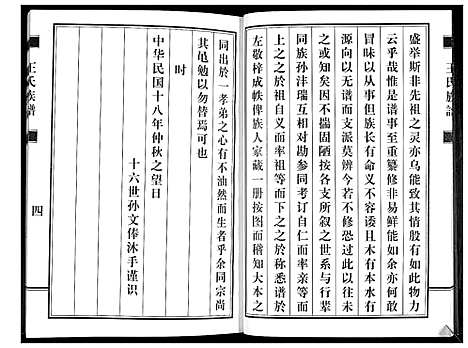 王氏族譜
盛举斯非先祖之灵亦乌能致其情殷有如此物力
云乎哉惟是谱事至重纂修非易鲜能如余亦何敢
冒昧以从事但族长咸曰不宜诿且木有本水有
源向以无谱而支派莫辨今若不修恐过此以往未
之或知矣因不揣固陋按各支所叙之世系与行辈
同族孙沣瑞互相对勘参同考订自仁而率亲等而
上之之於祖自义而率先祖等而下之之於称悉谱於
左敬梓成帙俾族人家藏一册按图而稽知大本之
同出於一孝弟之心有不油然而生者乎余同宗尚
其黾勉以勿替焉可也
时
中华民国十八年仲秋之望日
十六世孙文俸沐手谨识
王氏族譜
四